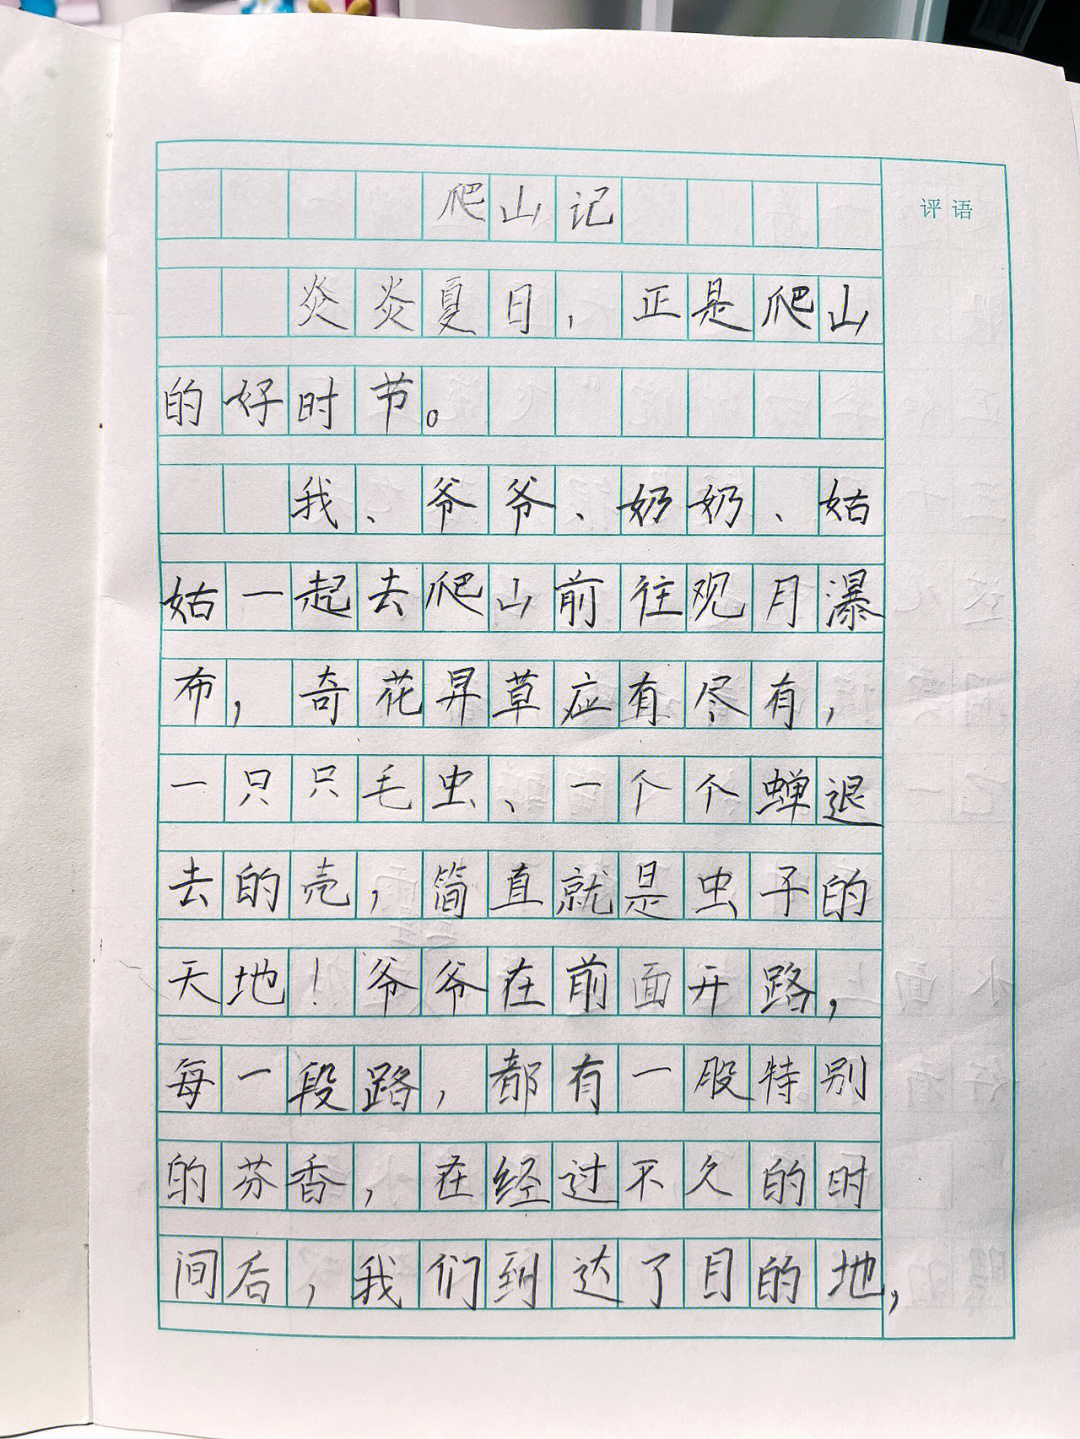 爬山记
评语
炎炎夏日，正是爬山
的好时节。
我、爷爷、奶奶、姑
姑一起去爬山前往观月瀑
布，奇花异草应有尽有，
一只只毛虫、一个个蝉退
去的壳，简直就是虫子的
天地！爷爷在前面开路，
每一段路，都有一股特别
的芬香，在经过不久的时
间后，我们到达了目的地，